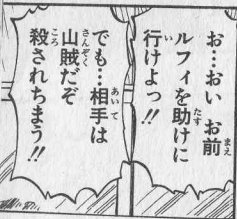 お…おい お前
ルフィを助けに
行けよっ!!
でも…相手は
山賊だぞ
殺されちまう!!